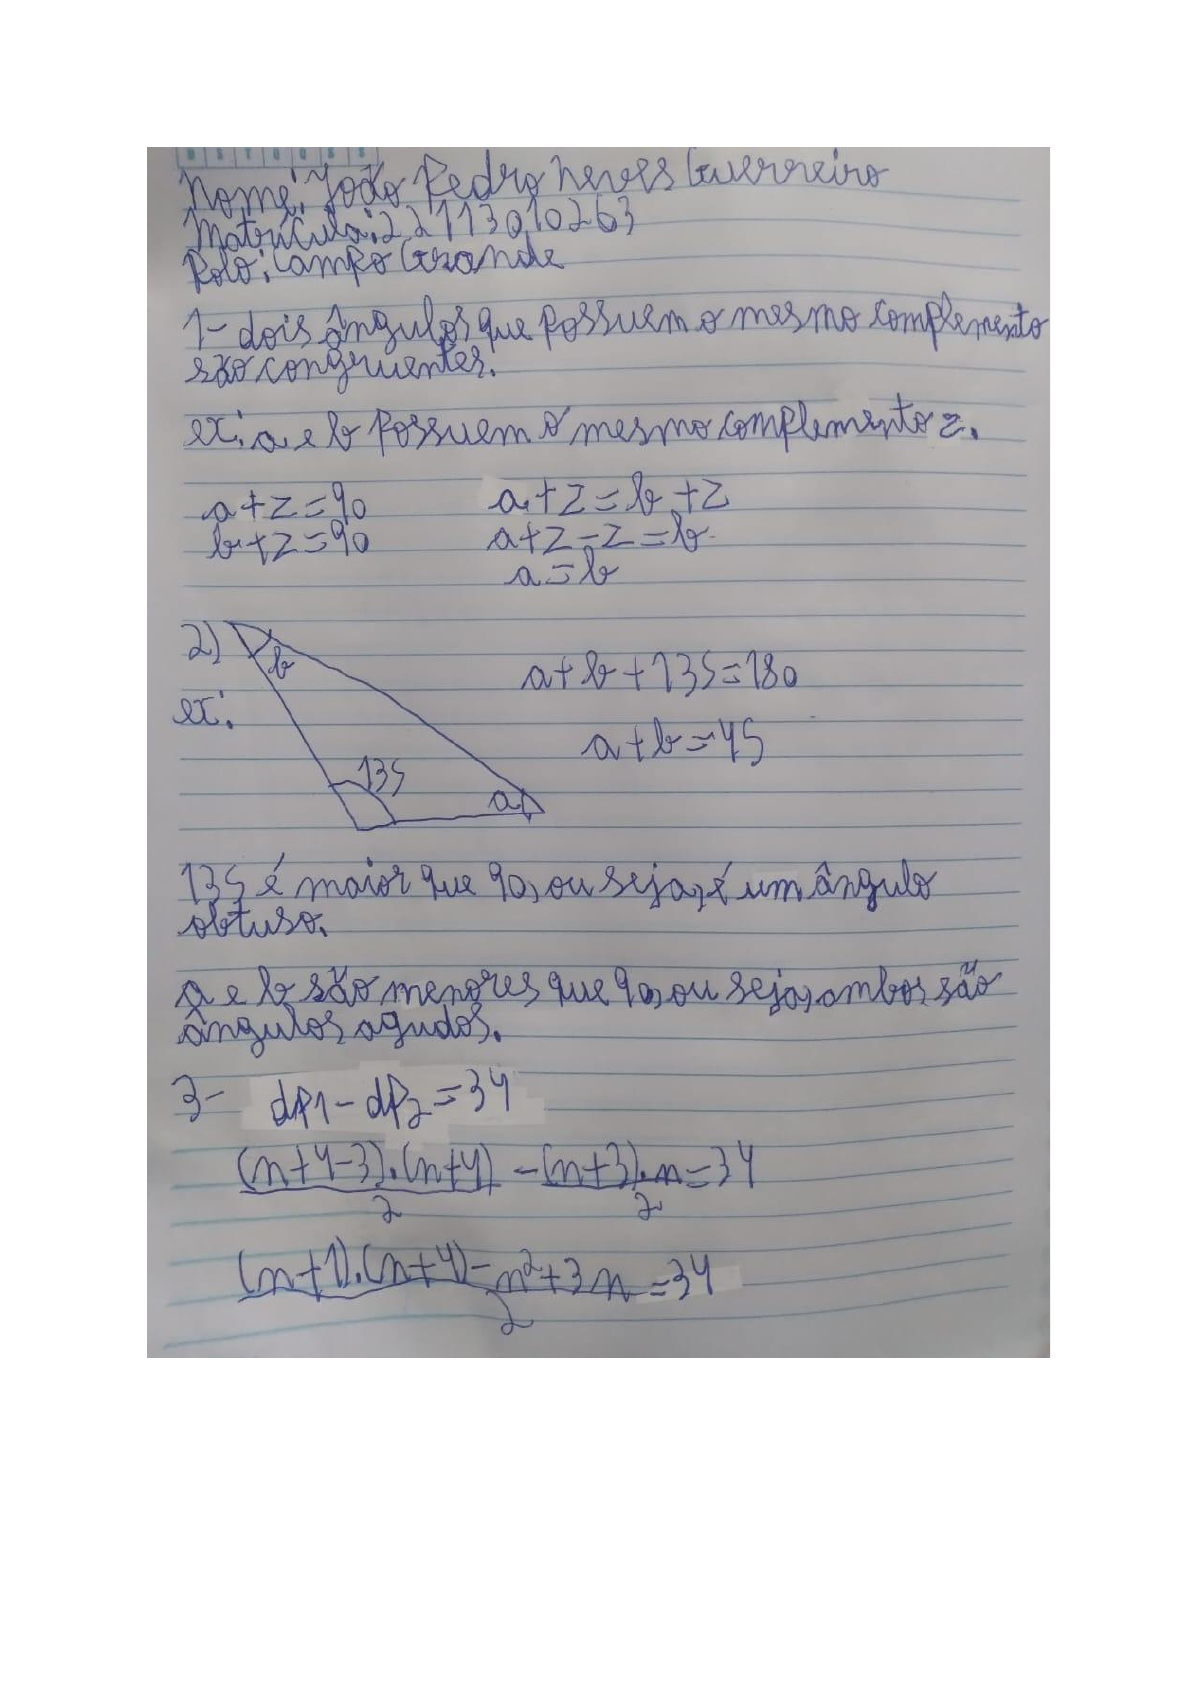 D S T Q Q S S
Nome: João Pedro Neves Guerreiro
Matrícula: 22113010263
Polo: Campo Grande
1- dois ângulos que possuem o mesmo complemento
são congruentes.
ex: a e b possuem o mesmo complemento z.
a+z=90 a+z=b+z
b+z=90 a+z-z=b
a=b
2) b a+b+135=180
ex: a+b=45
135 a
135 é maior que 90, ou seja, é um ângulo
obtuso.
a e b são menores que 90, ou seja, ambos são
ângulos agudos.
3- dp1 - dp2 = 34
(n+4-3).(n+4) - (n+3).n = 34
2 2
(n+1).(n+4) - n²+3n = 34
2